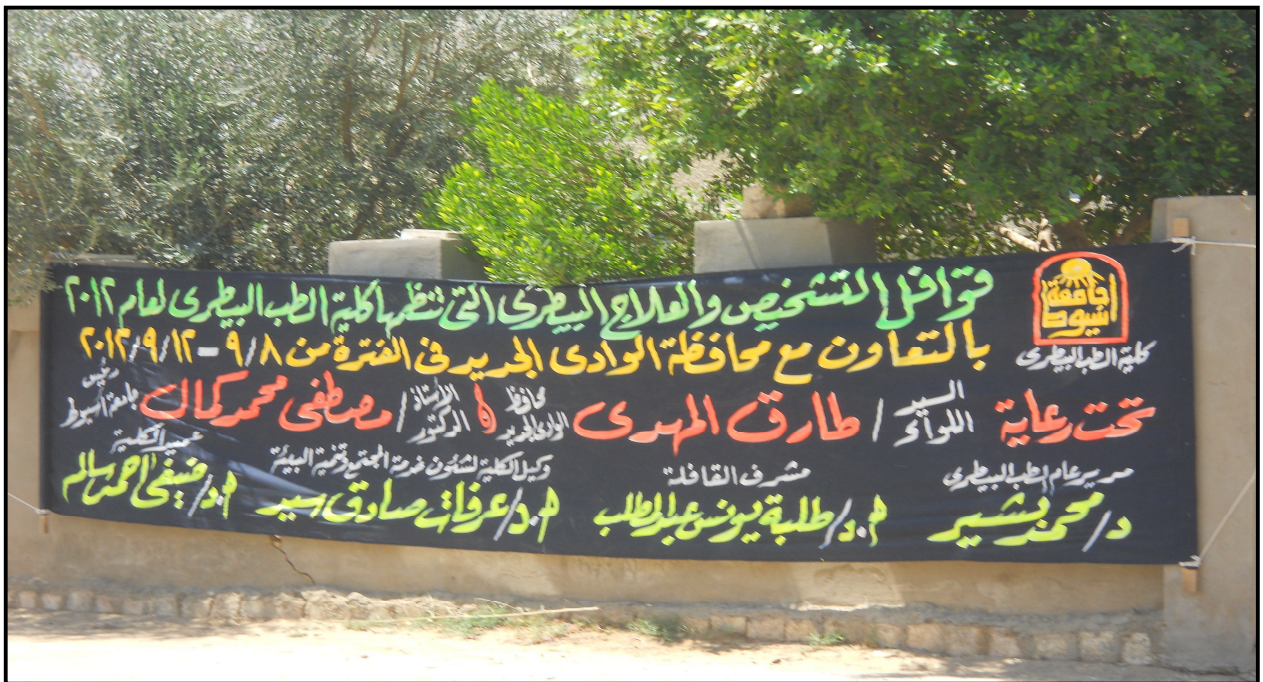 جامعة
أسيوط
كلية الطب البيطرى
قوافل التشخيص والعلاج البيطرى التى تنظمها كلية الطب البيطرى لعام ٢٠١٢
بالتعاون مع محافظة الوادى الجديد فى الفترة من ٩/٨ - ٢٠١٢/٩/١٢
تحت رعاية السيد اللواء / طارق المهدى محافظ الوادى الجديد & الأستاذ الدكتور / مصطفى محمد كمال رئيس جامعة أسيوط
مدير عام الطب البيطرى
د/ محمد بشير
مشرف القافلة
أ.د/ طلبة يونس عبد المطلب
وكيل الكلية لشئون خدمة المجتمع وتنمية البيئة
أ.د/ عرفات صادق سيد
عميد الكلية
أ.د/ ضيفى احمد سالم